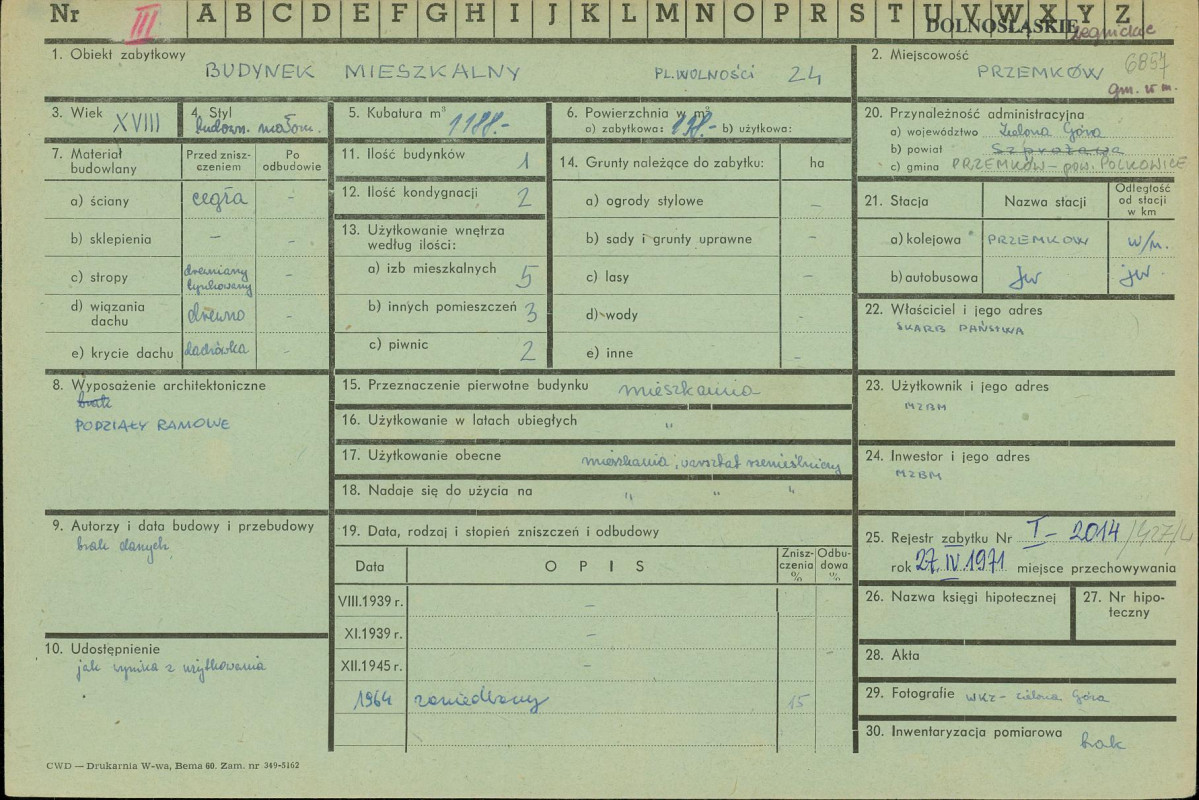 Nr III A B C D E F G H I J K L M N O P R S T U V W X Y Z
DOLNOŚLĄSKIE legnickie
1. Obiekt zabytkowy
BUDYNEK MIESZKALNY PL. WOLNOŚCI 24
2. Miejscowość
PRZEMKÓW 6857
gm. w m.
3. Wiek XVIII
4. Styl
budown. małom.
5. Kubatura m³
1188.-
6. Powierzchnia w m²
a) zabytkowa: 198.- b) użytkowa:
7. Materiał budowlany
Przed zniszczeniem
Po odbudowie
a) ściany cegła -
b) sklepienia - -
c) stropy drewniany tynkowany -
d) wiązania dachu drewno -
e) krycie dachu dachówka -
8. Wyposażenie architektoniczne
brak
PODZIAŁY RAMOWE
9. Autorzy i data budowy i przebudowy
brak danych
10. Udostępnienie
jak wynika z użytkowania
11. Ilość budynków 1
12. Ilość kondygnacji 2
13. Użytkowanie wnętrza według ilości:
a) izb mieszkalnych 5
b) innych pomieszczeń 3
c) piwnic 2
14. Grunty należące do zabytku: ha
a) ogrody stylowe -
b) sady i grunty uprawne -
c) lasy -
d) wody -
e) inne -
15. Przeznaczenie pierwotne budynku mieszkania
16. Użytkowanie w latach ubiegłych "
17. Użytkowanie obecne mieszkania, warsztat rzemieślniczy
18. Nadaje się do użycia na " " "
19. Data, rodzaj i stopień zniszczeń i odbudowy
Data O P I S Zniszczenia % Odbudowa %
VIII.1939 r. -
XI.1939 r. -
XII.1945 r. - -
1964 zaniedbany 15
20. Przynależność administracyjna
a) województwo Zielona Góra
b) powiat Szprotawa
c) gmina PRZEMKÓW - pow. POLKOWICE
21. Stacja Nazwa stacji Odległość od stacji w km
a) kolejowa PRZEMKOW w/m.
b) autobusowa jw jw.
22. Właściciel i jego adres
SKARB PAŃSTWA
23. Użytkownik i jego adres
MZBM
24. Inwestor i jego adres
MZBM
25. Rejestr zabytku Nr I - 2014 /427/L
rok 27. IV. 1971 miejsce przechowywania
26. Nazwa księgi hipotecznej
27. Nr hipoteczny
28. Akta
29. Fotografie WKZ - Zielona Góra
30. Inwentaryzacja pomiarowa
brak
CWD — Drukarnia W-wa, Bema 60. Zam. nr 349-5162